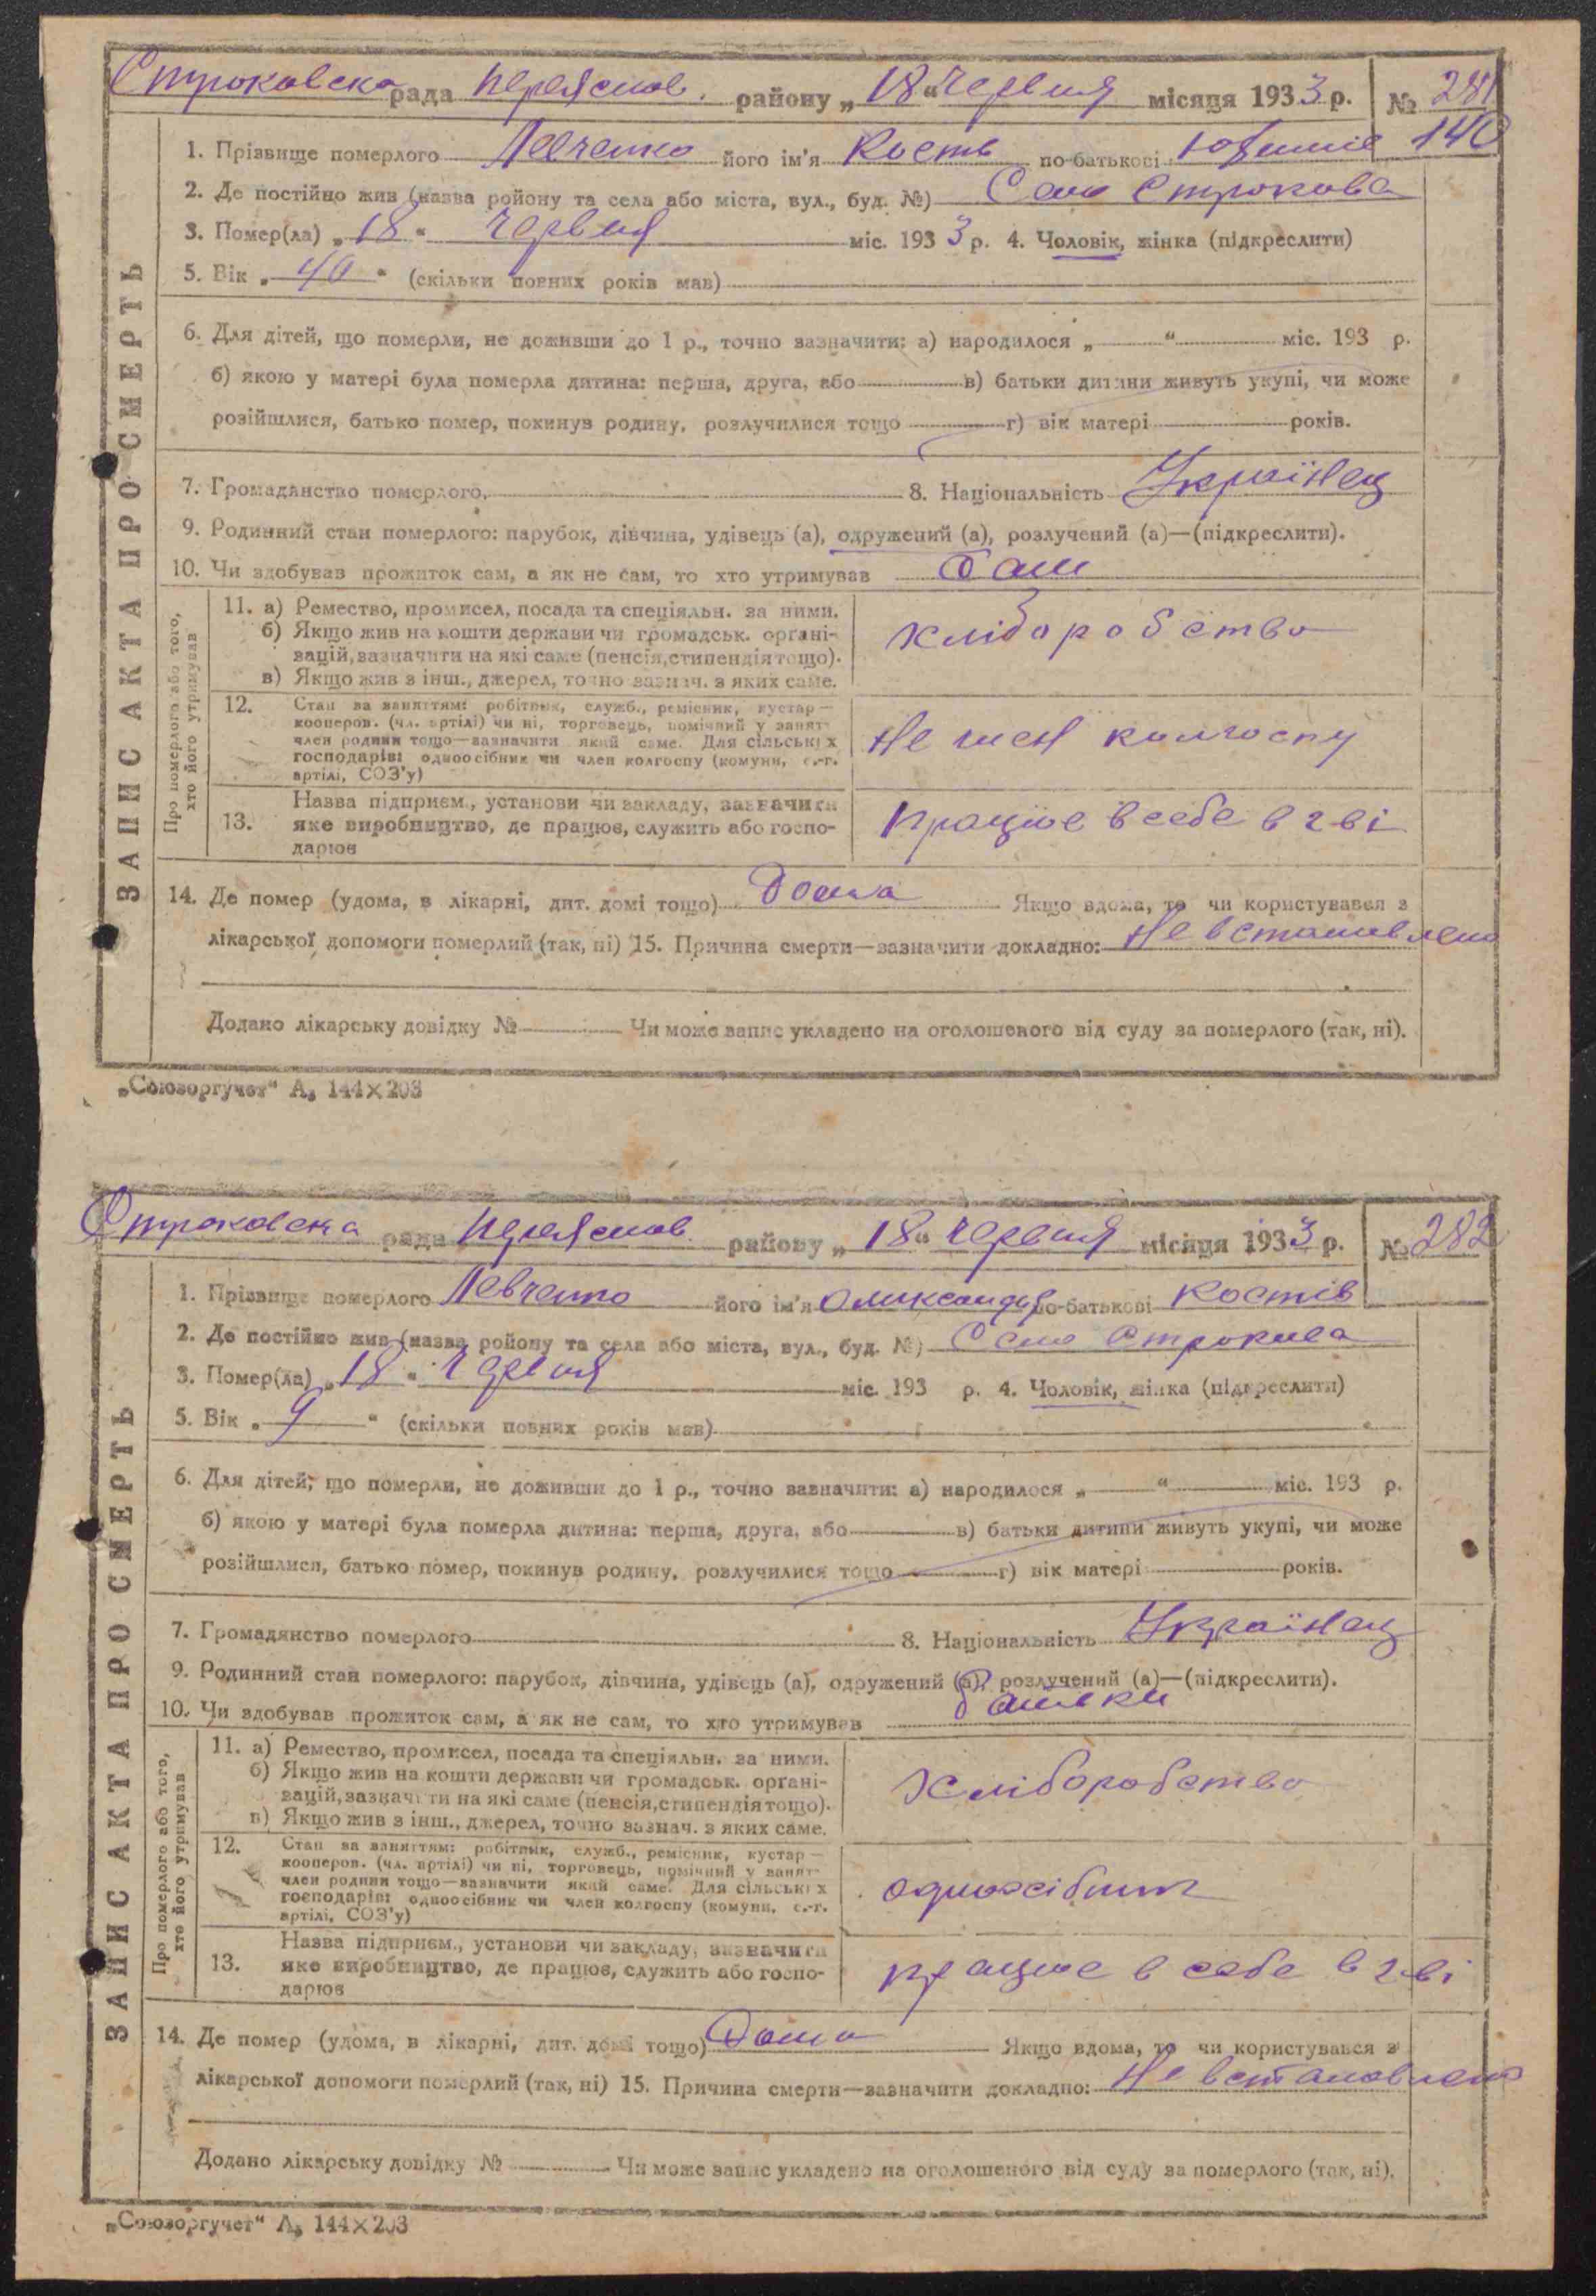 Строковска рада Переяслов. району „18“ Червня місяця 1933 р. № 281
140
1. Прізвище померлого Левченко його ім'я Кость по-батькові
2. Де постійно жив (назва ройону та села або міста, вул., буд. №) Село Строкова
3. Помер(ла) „18“ Червня міс. 1933 р. 4. Чоловік, жінка (підкреслити)
5. Вік „40“ (скільки повних років мав)
6. Для дітей, що померли, не доживши до 1 р., точно зазначити: а) народилося „ “ міс. 193 р.
б) якою у матері була померла дитина: перша, друга, або в) батьки дитини живуть укупі, чи може
розійшлися, батько помер, покинув родину, розлучилися тощо г) вік матері років.
7. Громадянство померлого 8. Національність Українец
9. Родинний стан померлого: парубок, дівчина, удівець (а), одружений (а), розлучений (а)—(підкреслити).
10. Чи здобував прожиток сам, а як не сам, то хто утримував Сам
ЗАПИС АКТА ПРО СМЕРТЬ
Про померлого або того, хто його утримував
11. а) Ремество, промисел, посада та спеціяльн. за ними.
б) Якщо жив на кошти держави чи громадськ. органі-
зацій, зазначити на які саме (пенсія, стипендія тощо).
в) Якщо жив з інш., джерел, точно зазнач. з яких саме.
хліборобство
12. Стан за заняттям: робітник, служб., ремісник, кустар—
кооперов. (чл. артілі) чи ні, торговець, помічний у занят-
член родини тощо—зазначити який саме. Для сільських
господарів: одноосібник чи член колгоспу (комуни, с.-г.
артілі, СОЗ'у)
Не член колгоспу
13. Назва підприєм., установи чи закладу, зазначити
яке виробництво, де працює, служить або госпо-
дарює
працює в себе в г-ві
14. Де помер (удома, в лікарні, дит. домі тощо) Дома Якщо вдома, то чи користувався з
лікарської допомоги померлий (так, ні) 15. Причина смерти—зазначити докладно: Не встановлено
Додано лікарську довідку № Чи може запис укладено на оголошеного від суду за померлого (так, ні).
„Союзоргучет“ А₅ 144×203
Строковска рада Переяслов. району „18“ червня місяця 1933 р. № 282
1. Прізвище померлого Левченко його ім'я Олександр по-батькові Костів
2. Де постійно жив (назва ройону та села або міста, вул., буд. №) Село Строкова
3. Помер(ла) „18“ Червня міс. 193 р. 4. Чоловік, жінка (підкреслити)
5. Вік „9“ (скільки повних років мав)
6. Для дітей, що померли, не доживши до 1 р., точно зазначити: а) народилося „ “ міс. 193 р.
б) якою у матері була померла дитина: перша, друга, або в) батьки дитини живуть укупі, чи може
розійшлися, батько помер, покинув родину, розлучилися тощо г) вік матері років.
7. Громадянство померлого 8. Національність Українец
9. Родинний стан померлого: парубок, дівчина, удівець (а), одружений (а), розлучений (а)—(підкреслити).
10. Чи здобував прожиток сам, а як не сам, то хто утримував батьки
ЗАПИС АКТА ПРО СМЕРТЬ
Про померлого або того, хто його утримував
11. а) Ремество, промисел, посада та спеціяльн. за ними.
б) Якщо жив на кошти держави чи громадськ. органі-
зацій, зазначити на які саме (пенсія, стипендія тощо).
в) Якщо жив з інш., джерел, точно зазнач. з яких саме.
хліборобство
12. Стан за заняттям: робітник, служб., ремісник, кустар—
кооперов. (чл. артілі) чи ні, торговець, помічний у занят-
член родини тощо—зазначити який саме. Для сільських
господарів: одноосібник чи член колгоспу (комуни, с.-г.
артілі, СОЗ'у)
одноосібник
13. Назва підприєм., установи чи закладу, зазначити
яке виробництво, де працює, служить або госпо-
дарює
працює в себе в г-ві
14. Де помер (удома, в лікарні, дит. домі тощо) Дома Якщо вдома, то чи користувався з
лікарської допомоги померлий (так, ні) 15. Причина смерти—зазначити докладно: Не встановлено
Додано лікарську довідку № Чи може запис укладено на оголошеного від суду за померлого (так, ні).
„Союзоргучет“ А₅ 144×203